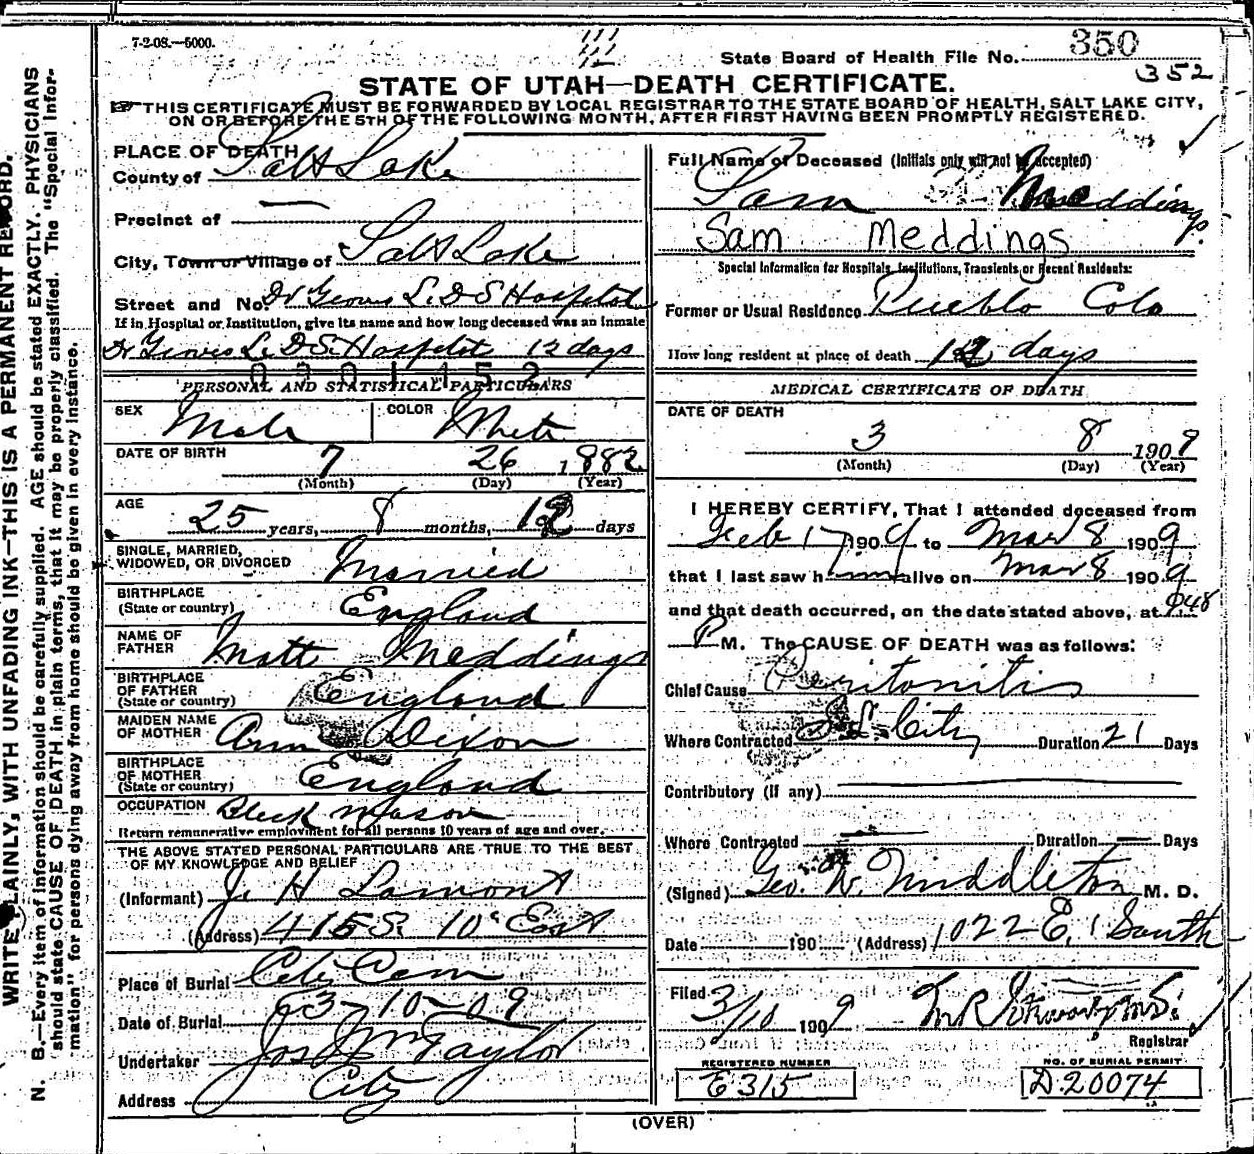 7-2-08.—5000.
State Board of Health File No. 350
352
STATE OF UTAH—DEATH CERTIFICATE.
THIS CERTIFICATE MUST BE FORWARDED BY LOCAL REGISTRAR TO THE STATE BOARD OF HEALTH, SALT LAKE CITY,
ON OR BEFORE THE 5TH OF THE FOLLOWING MONTH, AFTER FIRST HAVING BEEN PROMPTLY REGISTERED.
WRITE PLAINLY, WITH UNFADING INK—THIS IS A PERMANENT RECORD.
N. B.—Every item of information should be carefully supplied. AGE should be stated EXACTLY. PHYSICIANS
should state CAUSE OF DEATH in plain terms, that it may be properly classified. The "Special Infor-
mation" for persons dying away from home should be given in every instance.
PLACE OF DEATH
County of Salt Lake
Precinct of —
City, Town or Village of Salt Lake
Street and No. Dr Groves L. D S Hospital
If in Hospital or Institution, give its name and how long deceased was an inmate
Dr Groves L. D. S. Hospital 12 days
0301152
PERSONAL AND STATISTICAL PARTICULARS
SEX Male COLOR White
DATE OF BIRTH 7 26 1882
(Month) (Day) (Year)
AGE 25 years, 8 months, 12 days
SINGLE, MARRIED,
WIDOWED, OR DIVORCED Married
BIRTHPLACE
(State or country) England
NAME OF
FATHER Matt Meddings
BIRTHPLACE
OF FATHER
(State or country) England
MAIDEN NAME
OF MOTHER Ann Dixon
BIRTHPLACE
OF MOTHER
(State or country) England
OCCUPATION Mason
Return remunerative employment for all persons 10 years of age and over.
THE ABOVE STATED PERSONAL PARTICULARS ARE TRUE TO THE BEST
OF MY KNOWLEDGE AND BELIEF
(Informant) J. H Lamont
(Address) 415 S. 10th East
Place of Burial City Cem
Date of Burial 3-10-09
Undertaker Jos Wm Taylor
Address City
Full Name of Deceased (Initials only will not be accepted)
Sam Meddings.
Sam Meddings
Special Information for Hospitals, Institutions, Transients or Recent Residents:
Former or Usual Residence Pueblo Colo
How long resident at place of death 12 days
MEDICAL CERTIFICATE OF DEATH
DATE OF DEATH
3 8 1909
(Month) (Day) (Year)
I HEREBY CERTIFY, That I attended deceased from
Feb 17 1909 to Mar 8 1909
that I last saw him alive on Mar 8 1909
and that death occurred, on the date stated above, at
P M. The CAUSE OF DEATH was as follows:
Chief Cause Peritonitis
Where Contracted S. L. City Duration 21 Days
Contributory (If any) —
Where Contracted — Duration — Days
(Signed) Geo. W. Middleton M. D.
Date 190 (Address) 1022 E. 1 South
Filed 3/10 1909
Registrar
REGISTERED NUMBER
E315
NO. OF BURIAL PERMIT
D.20074
(OVER)